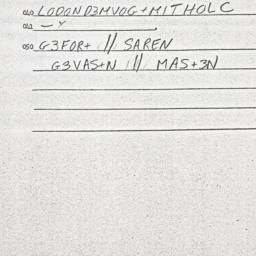 040 LODOND3MVOG+MITHOLC
043 — Y
050 G3FOR+ // SAREN
G3VAS+N // MAS+3N